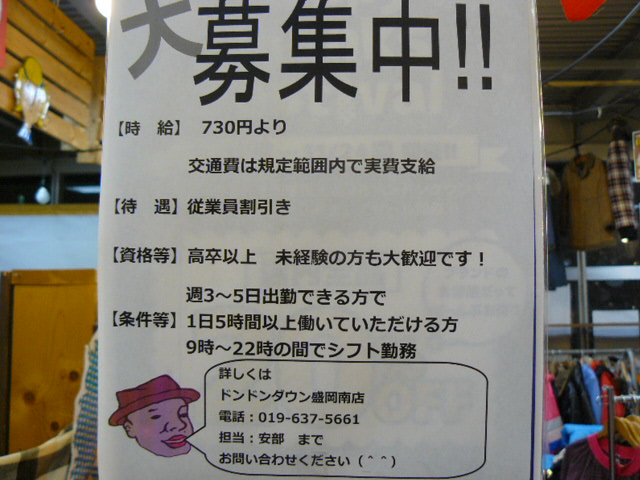 大募集中!!
【時　給】 730円より
交通費は規定範囲内で実費支給
【待　遇】従業員割引き
【資格等】高卒以上　未経験の方も大歓迎です！
週3～5日出勤できる方で
【条件等】1日5時間以上働いていただける方
9時～22時の間でシフト勤務
詳しくは
ドンドンダウン盛岡南店
電話：019-637-5661
担当：安部　まで
お問い合わせください（＾＾）